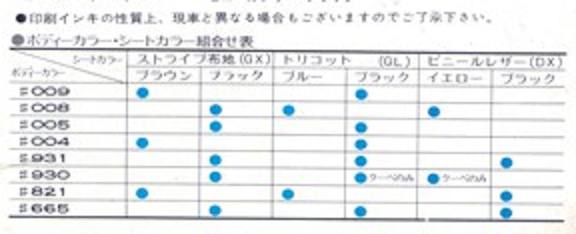 ●印刷インキの性質上、現車と異なる場合もございますのでご了承下さい。
●ボディーカラー・シートカラー組合せ表
シートカラー ストライプ布地(GX) トリコット (GL) ビニールレザー(DX)
ボディーカラー ブラウン ブラック ブルー ブラック イエロー ブラック
#009 ● ●
#008 ● ● ●
#005 ● ●
#004 ● ●
#931 ● ● ●
#930 ● ●クーペのみ ●クーペのみ
#821 ● ● ●
#665 ● ● ●